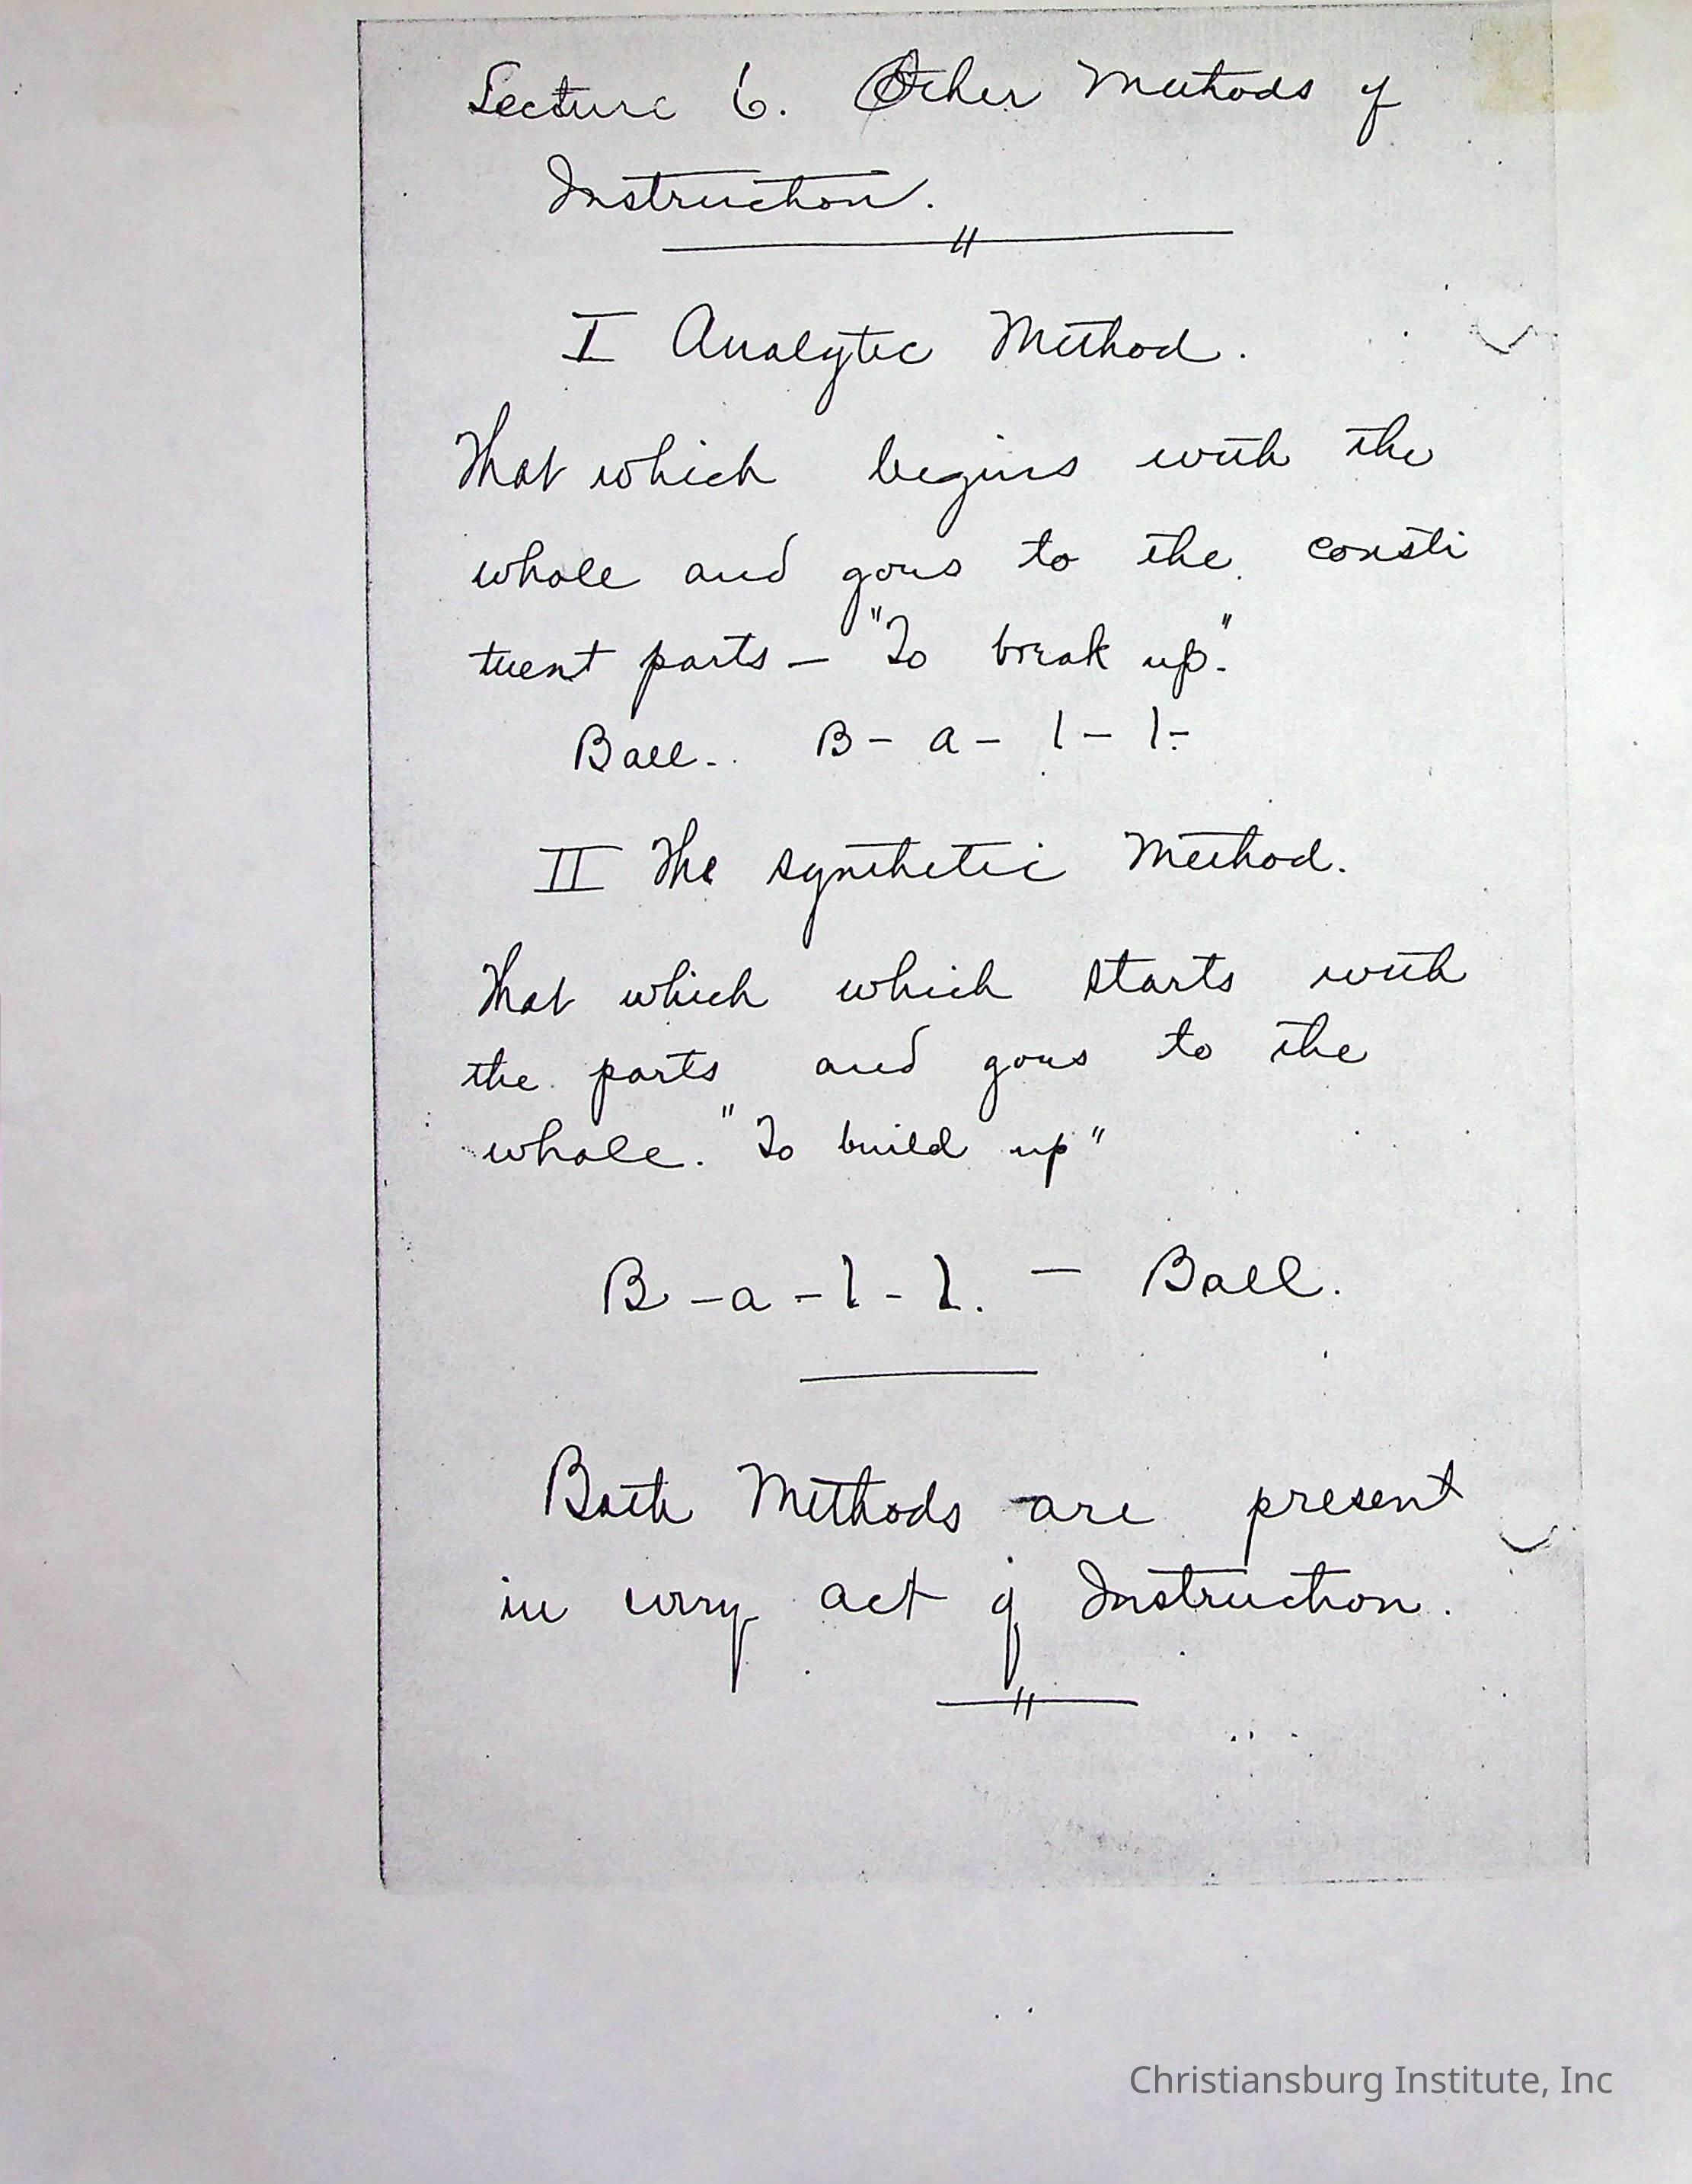 Lecture 6. Other Methods of
Instruction.
I Analytic Method.
That which begins with the
whole and goes to the consti
tuent parts — "To break up."
Ball. B - a - l - l -
II The synthetic Method.
That which which starts with
the parts and goes to the
whole. "To build up"
B - a - l - l. — Ball.
Both Methods are present
in every act of Instruction.
Christiansburg Institute, Inc